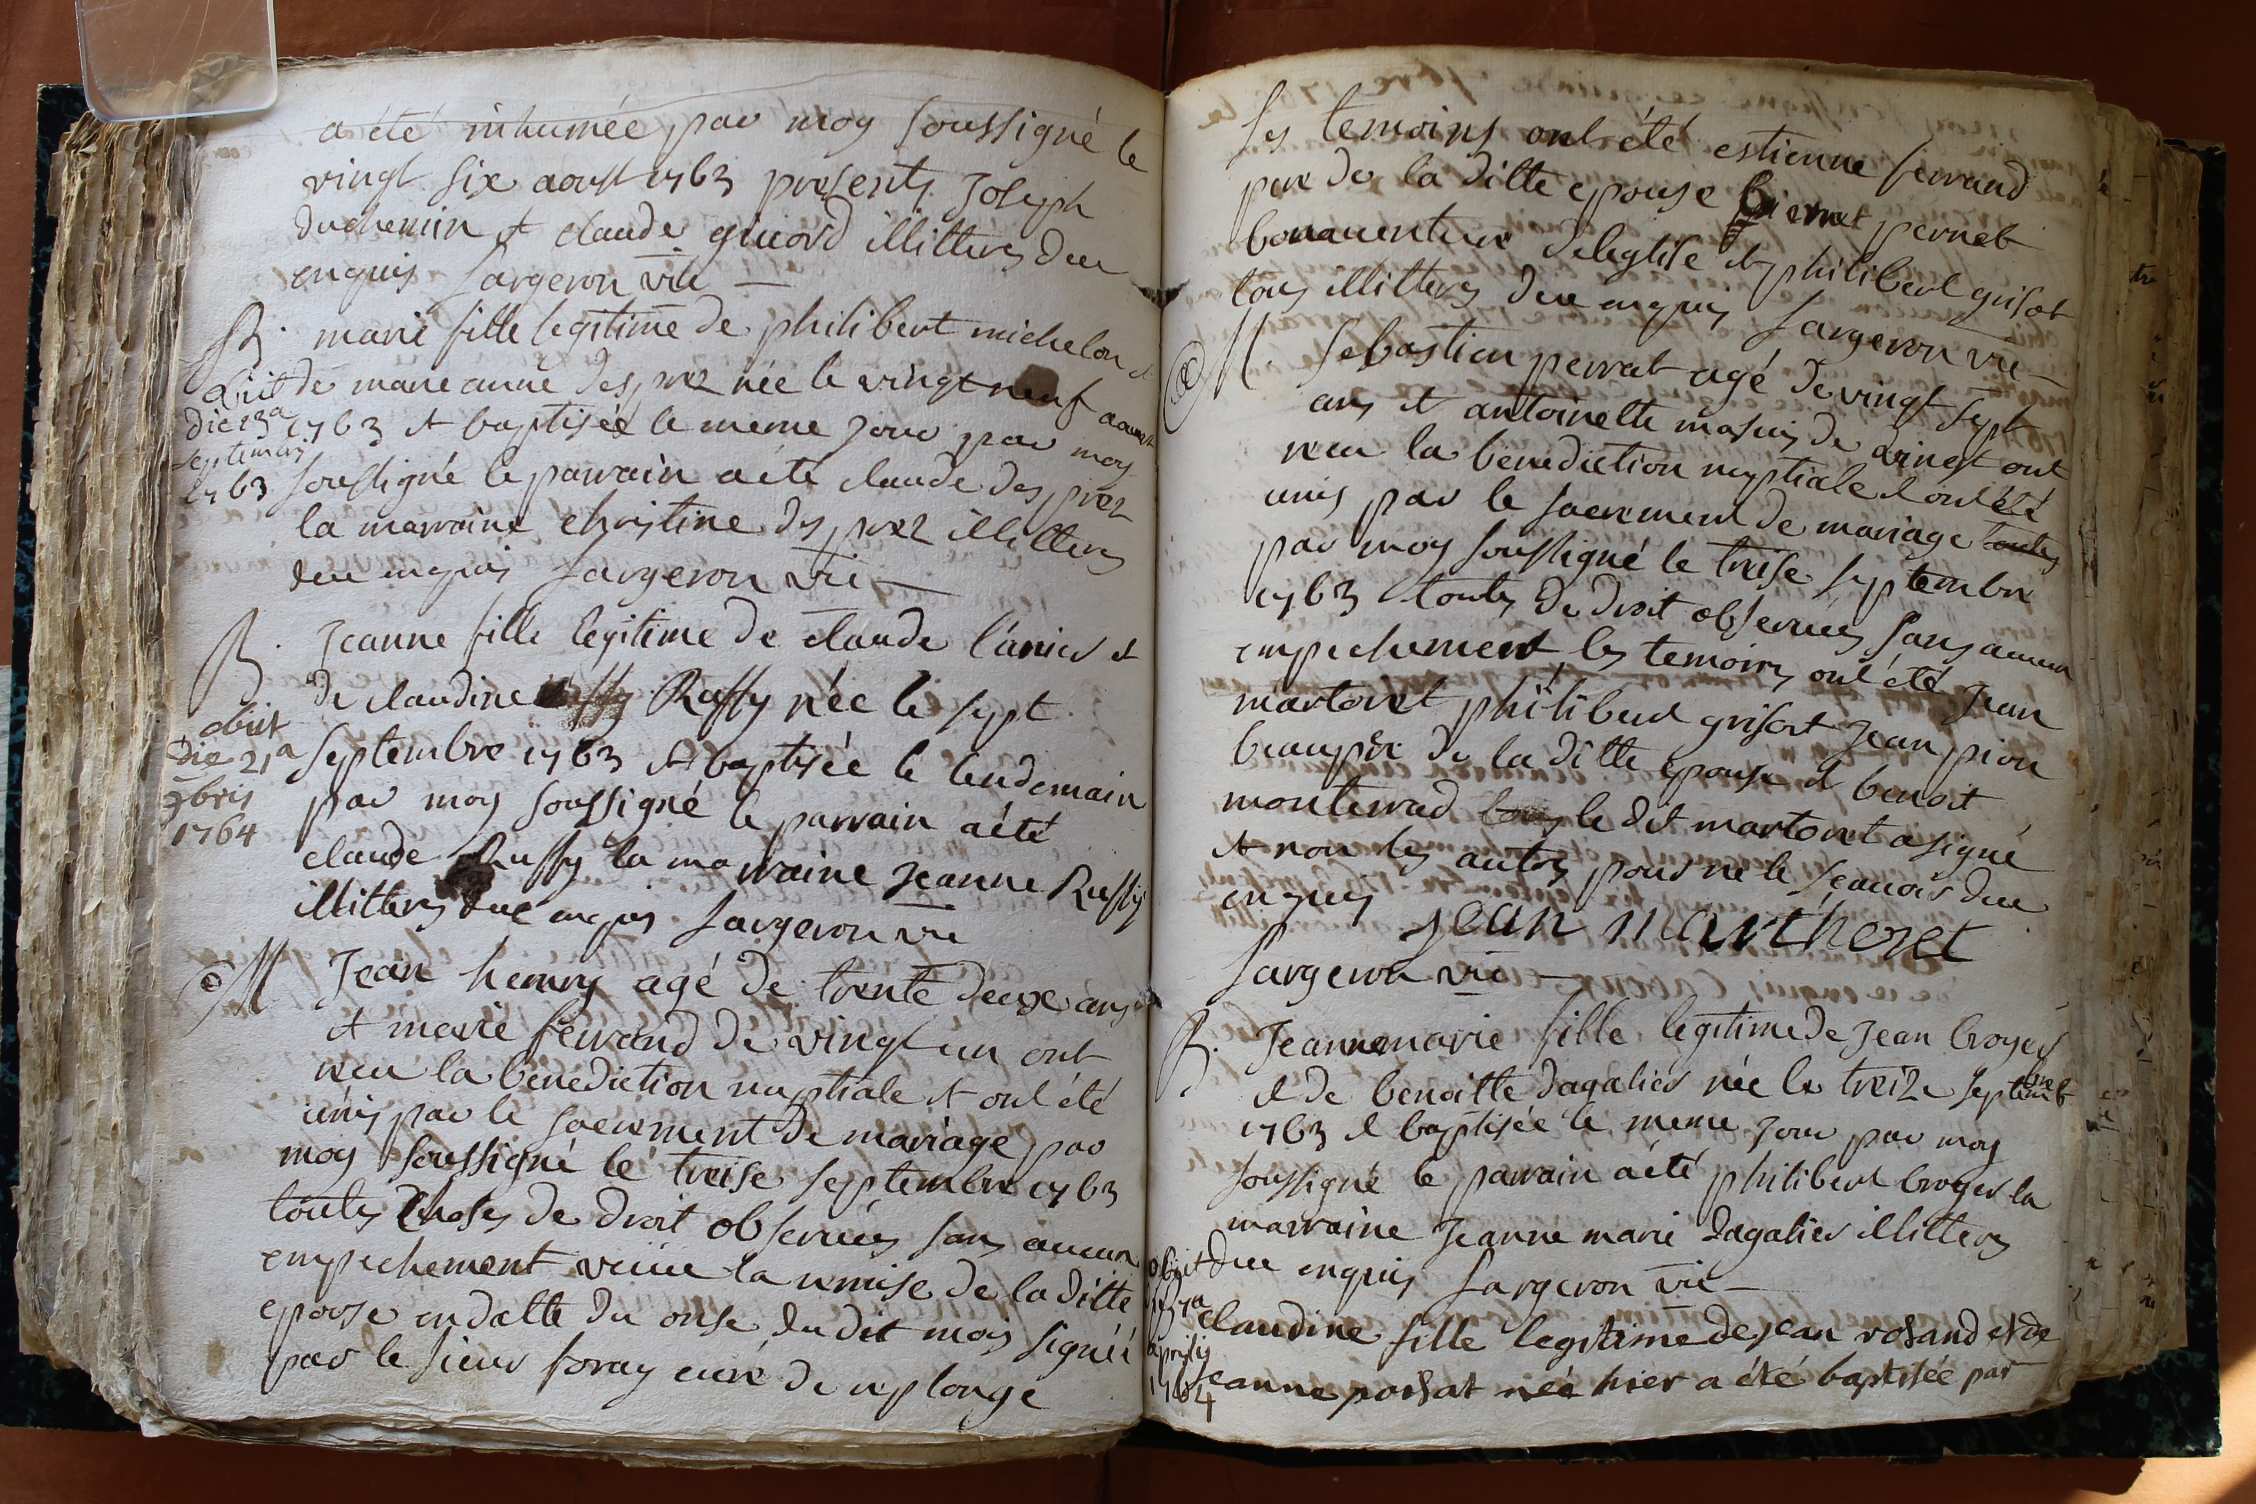 a été inhumée par moy soussigné le
vingt six aoust 1763 presents Joseph
duchemin et claude giuord illitterés deu
enquis Sargeron vic
B. marie fille legitime de philibert michelon et
de marie anne des prez née le vingt neuf aoust
1763 et baptisée le meme jour par moy
soussigné le parrain a été claude des prez
la marraine christine des prez illitterés
deu enquis Sargeron vic
obiit
die 13a
septembris
1763
B. Jeanne fille legitime de claude l'anier et
de claudine Ruffy née le sept
septembre 1763 et baptisée le lendemain
par moy soussigné le parrain a été
claude Ruffy la marraine Jeanne Ruffy
illitterés deue enquis Sargeron vic
obiit
die 21a
9bris
1764
M Jean henry agé de trente deux ans
et marie ferrand de vingt un ont
receu la benediction nuptiale et ont été
unis par le sacrement de mariage par
moy soussigné le treise septembre 1763
toutes choses de droit observées sans aucun
empechement veüe la remise de la ditte
epouse en datte du onse du dit mois signée
par le sieur foray curé de replonge
les temoins ont été estienne ferrand
pere de la ditte epouse pierret pernet
bonaventure deleglise et philibert grisot
tous illitterés deue enquis Sargeron vic
M. Sebastien perrat agé de vingt sept
ans et antoinette masuis de vingt ont
receu la benediction nuptiale et ont été
unis par le sacrement de mariage toutes
par moy soussigné le treise septembre
1763 toutes de droit observées sans aucun
empechement les temoins ont été Jean
martoret philibert grisot Jean pion
beaupere de la ditte epouse et benoit
monterrad tous le dit martoret a signé
et non les autres pour ne le sçauoir deu
enquis Jean martheret
Sargeron vic
B. Jeannemarie fille legitime de Jean broyer
et de benoitte dagalier née le treize septembre
1763 et baptisée le meme jour par moy
soussigné le parrain a été philibert broyer la
marraine Jeanne marie dagalier illitterés
deue enquis Sargeron vic
obiit
7a
aprilis
1764
claudine fille legitime de jean rosand et de
jeanne possat née hier a été baptisée par